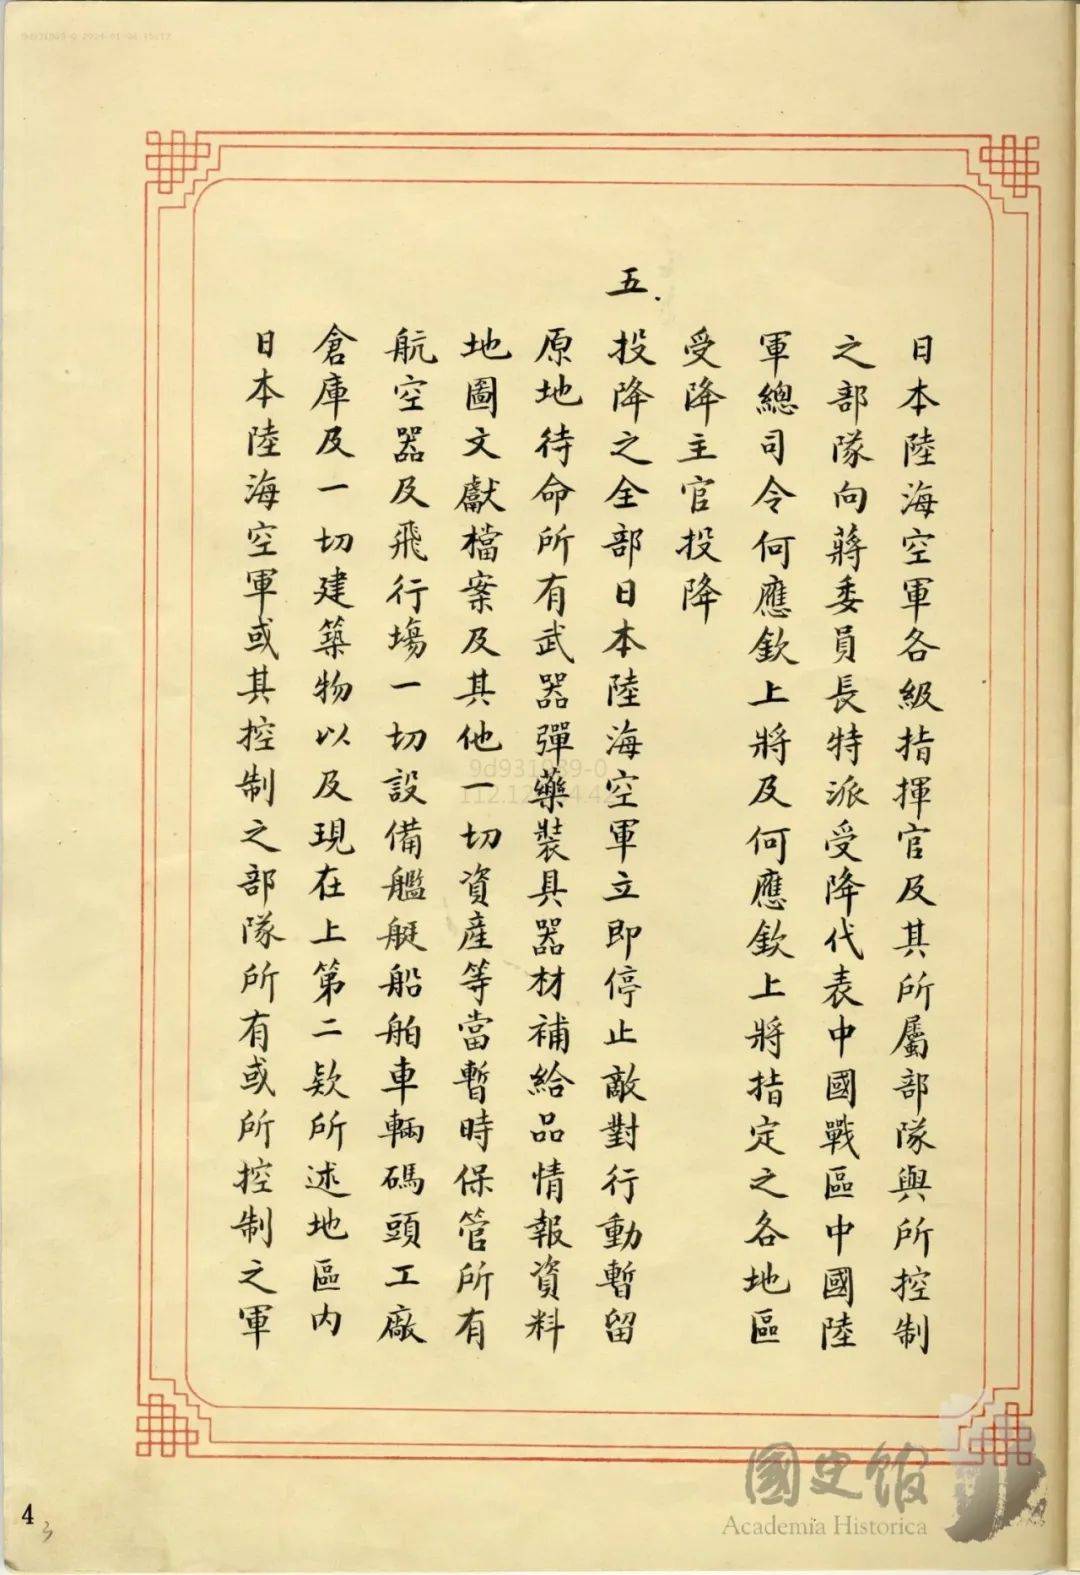 日本陸海空軍各級指揮官及其所屬部隊與所控制
之部隊向蔣委員長特派受降代表中國戰區中國陸
軍總司令何應欽上將及何應欽上將指定之各地區
受降主官投降
五.投降之全部日本陸海空軍立即停止敵對行動暫留
原地待命所有武器彈藥裝具器材補給品情報資料
地圖文獻檔案及其他一切資產等當暫時保管所有
航空器及飛行場一切設備艦艇船舶車輛碼頭工廠
倉庫及一切建築物以及現在上第二款所述地區內
日本陸海空軍或其控制之部隊所有或所控制之軍
4
3
國史館
Academia Historica
9d931989-0